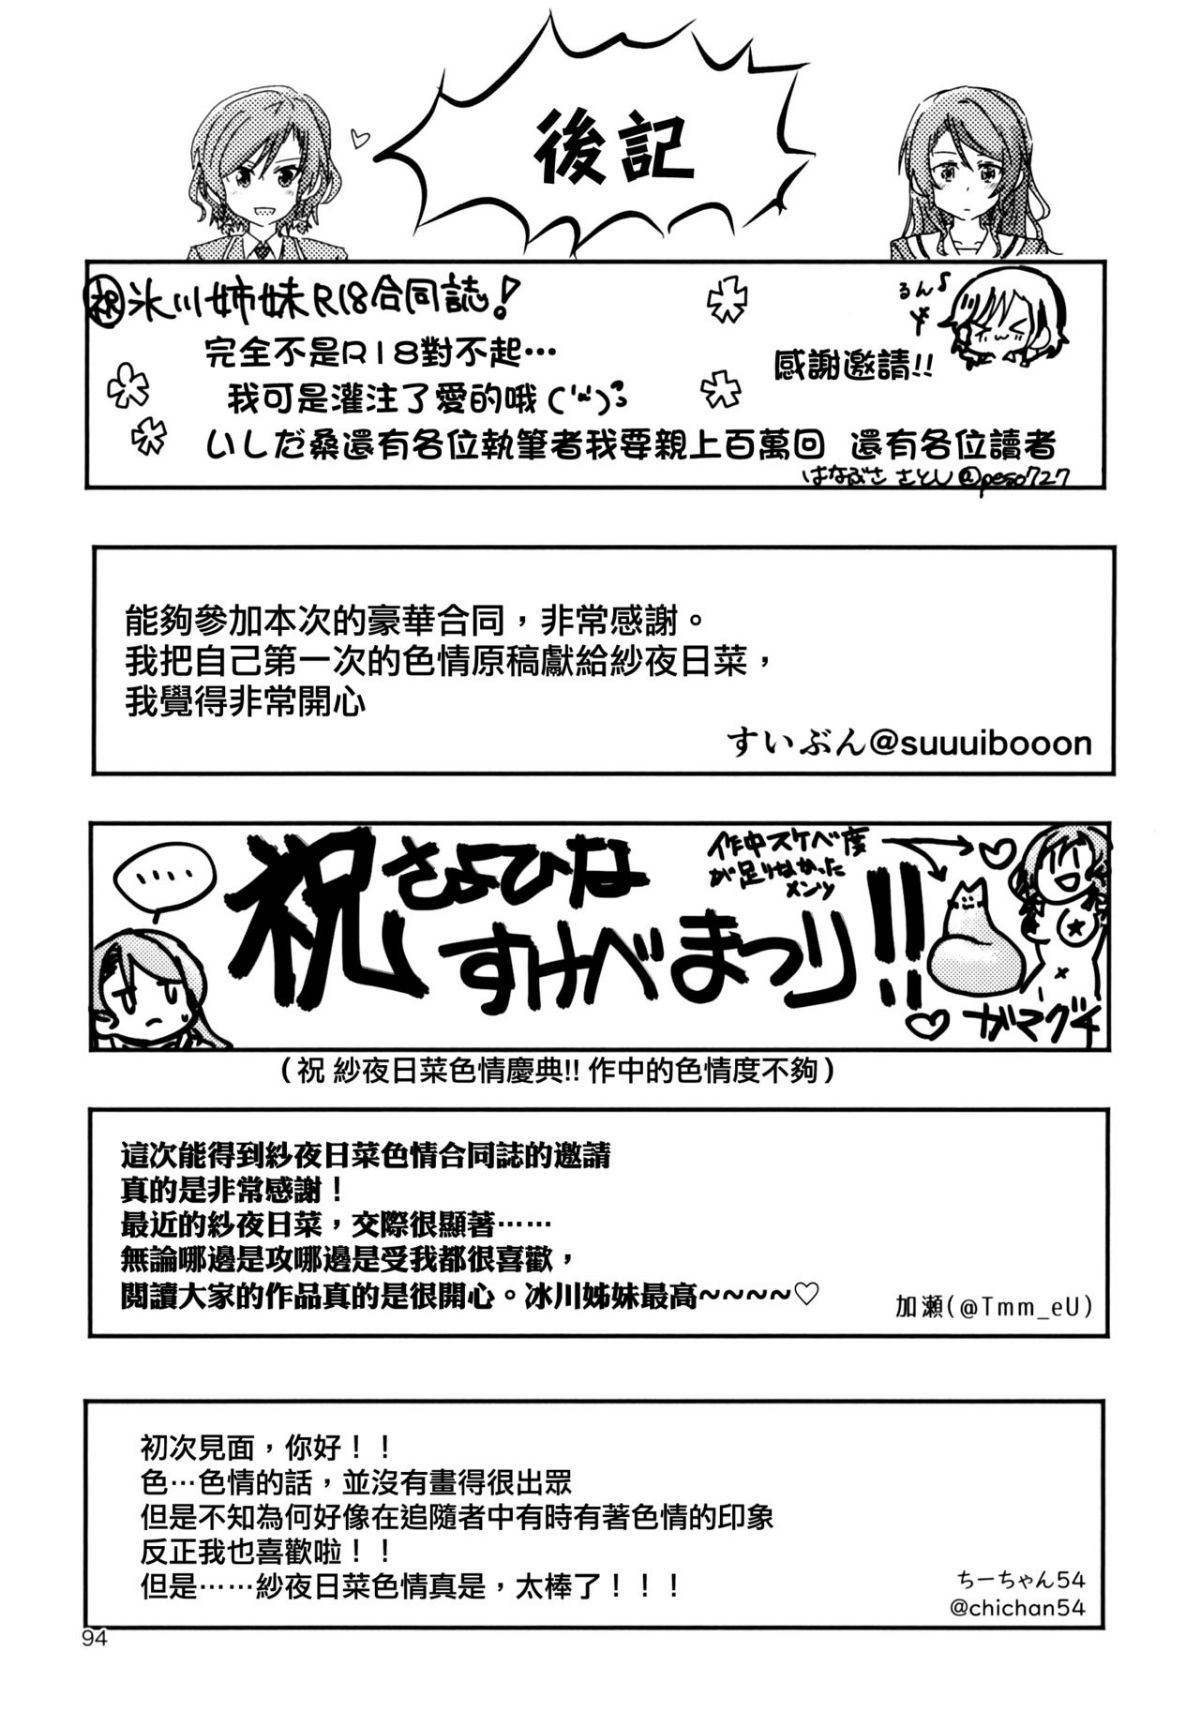 後記
祝 氷川姉妹R18合同誌!
るん♪
完全不是R18對不起…
感謝邀請!!
我可是灌注了愛的哦
いしだ桑還有各位執筆者我要親上百萬回 還有各位讀者
はなぶさ さとし @peso727
能夠參加本次的豪華合同，非常感謝。
我把自己第一次的色情原稿獻給紗夜日菜，
我覺得非常開心
すいぶん@suuuibooon
‥‥
祝 さよひな
すけべまつり!!
作中スケベ度
が足りなかった
メンツ
ガマグチ
（祝 紗夜日菜色情慶典!! 作中的色情度不夠）
這次能得到紗夜日菜色情合同誌的邀請
真的是非常感謝！
最近的紗夜日菜，交際很顯著……
無論哪邊是攻哪邊是受我都很喜歡，
閱讀大家的作品真的是很開心。冰川姊妹最高~~~~♡
加瀬(@Tmm_eU)
初次見面，你好！！
色…色情的話，並沒有畫得很出眾
但是不知為何好像在追隨者中有時有著色情的印象
反正我也喜歡啦！！
但是……紗夜日菜色情真是，太棒了！！！
ちーちゃん54
@chichan54
94